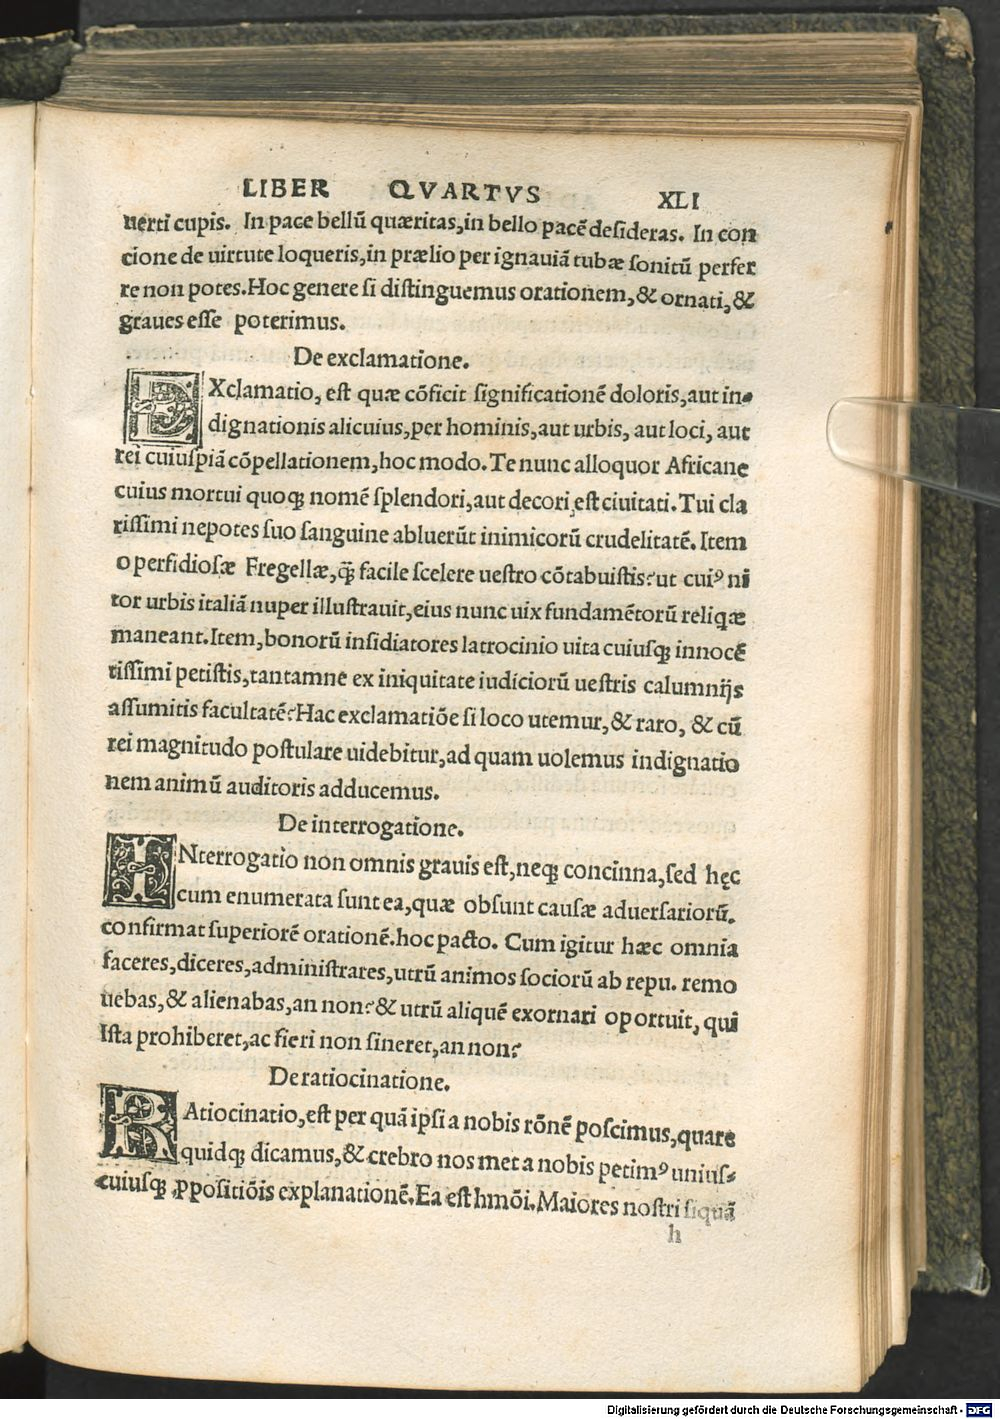 LIBER QVARTVS XLI
uerti cupis. In pace bellũ quæritas,in bello pacẽ desideras. In con
cione de uirtute loqueris,in prælio per ignauiã tubæ sonitũ perfer
re non potes.Hoc genere si distinguemus orationem,& ornati,&
graues esse poterimus.
De exclamatione.
EXclamatio, est quæ cõficit significationẽ doloris,aut in-
dignationis alicuius,per hominis,aut urbis, aut loci, aut
rei cuiuspiã cõpellationem,hoc modo.Te nunc alloquor Africane
cuius mortui quoqꝫ nomẽ splendori,aut decori est ciuitati.Tui cla
rissimi nepotes suo sanguine abluerũt inimicorũ crudelitatẽ.Item
o perfidiosæ Fregellæ,q̃ꝫ facile scelere uestro cõtabuistis?ut cuiꝰ ni
tor urbis italiã nuper illustrauit,eius nunc uix fundamẽtorũ reliqæ
maneant.Item,bonorũ insidiatores latrocinio uita cuiusqꝫ innocẽ
tissimi petistis,tantamne ex iniquitate iudiciorũ uestris calumnijs
assumitis facultatẽ?Hac exclamatiõe si loco utemur,& raro, & cũ
rei magnitudo postulare uidebitur,ad quam uolemus indignatio
nem animũ auditoris adducemus.
De interrogatione.
INterrogatio non omnis grauis est,neqꝫ concinna,sed hęc
cum enumerata sunt ea,quæ obsunt causæ aduersariorũ.
confirmat superiorẽ orationẽ.hoc pacto. Cum igitur hæc omnia
faceres,diceres,administrares,utrũ animos sociorũ ab repu. remo
uebas,& alienabas,an non?& utrũ aliquẽ exornari oportuit, qui
Ista prohiberet,ac fieri non sineret,an non?
De ratiocinatione.
RAtiocinatio,est per quã ipsi a nobis rõnẽ poscimus,quare
quidqꝫ dicamus,& crebro nos met a nobis petimꝰ unius-
cuiusqꝫ ꝓpositiõis explanationẽ.Ea est hmõi.Maiores nostri siquã
h
Digitalisierung gefördert durch die Deutsche Forschungsgemeinschaft - DFG